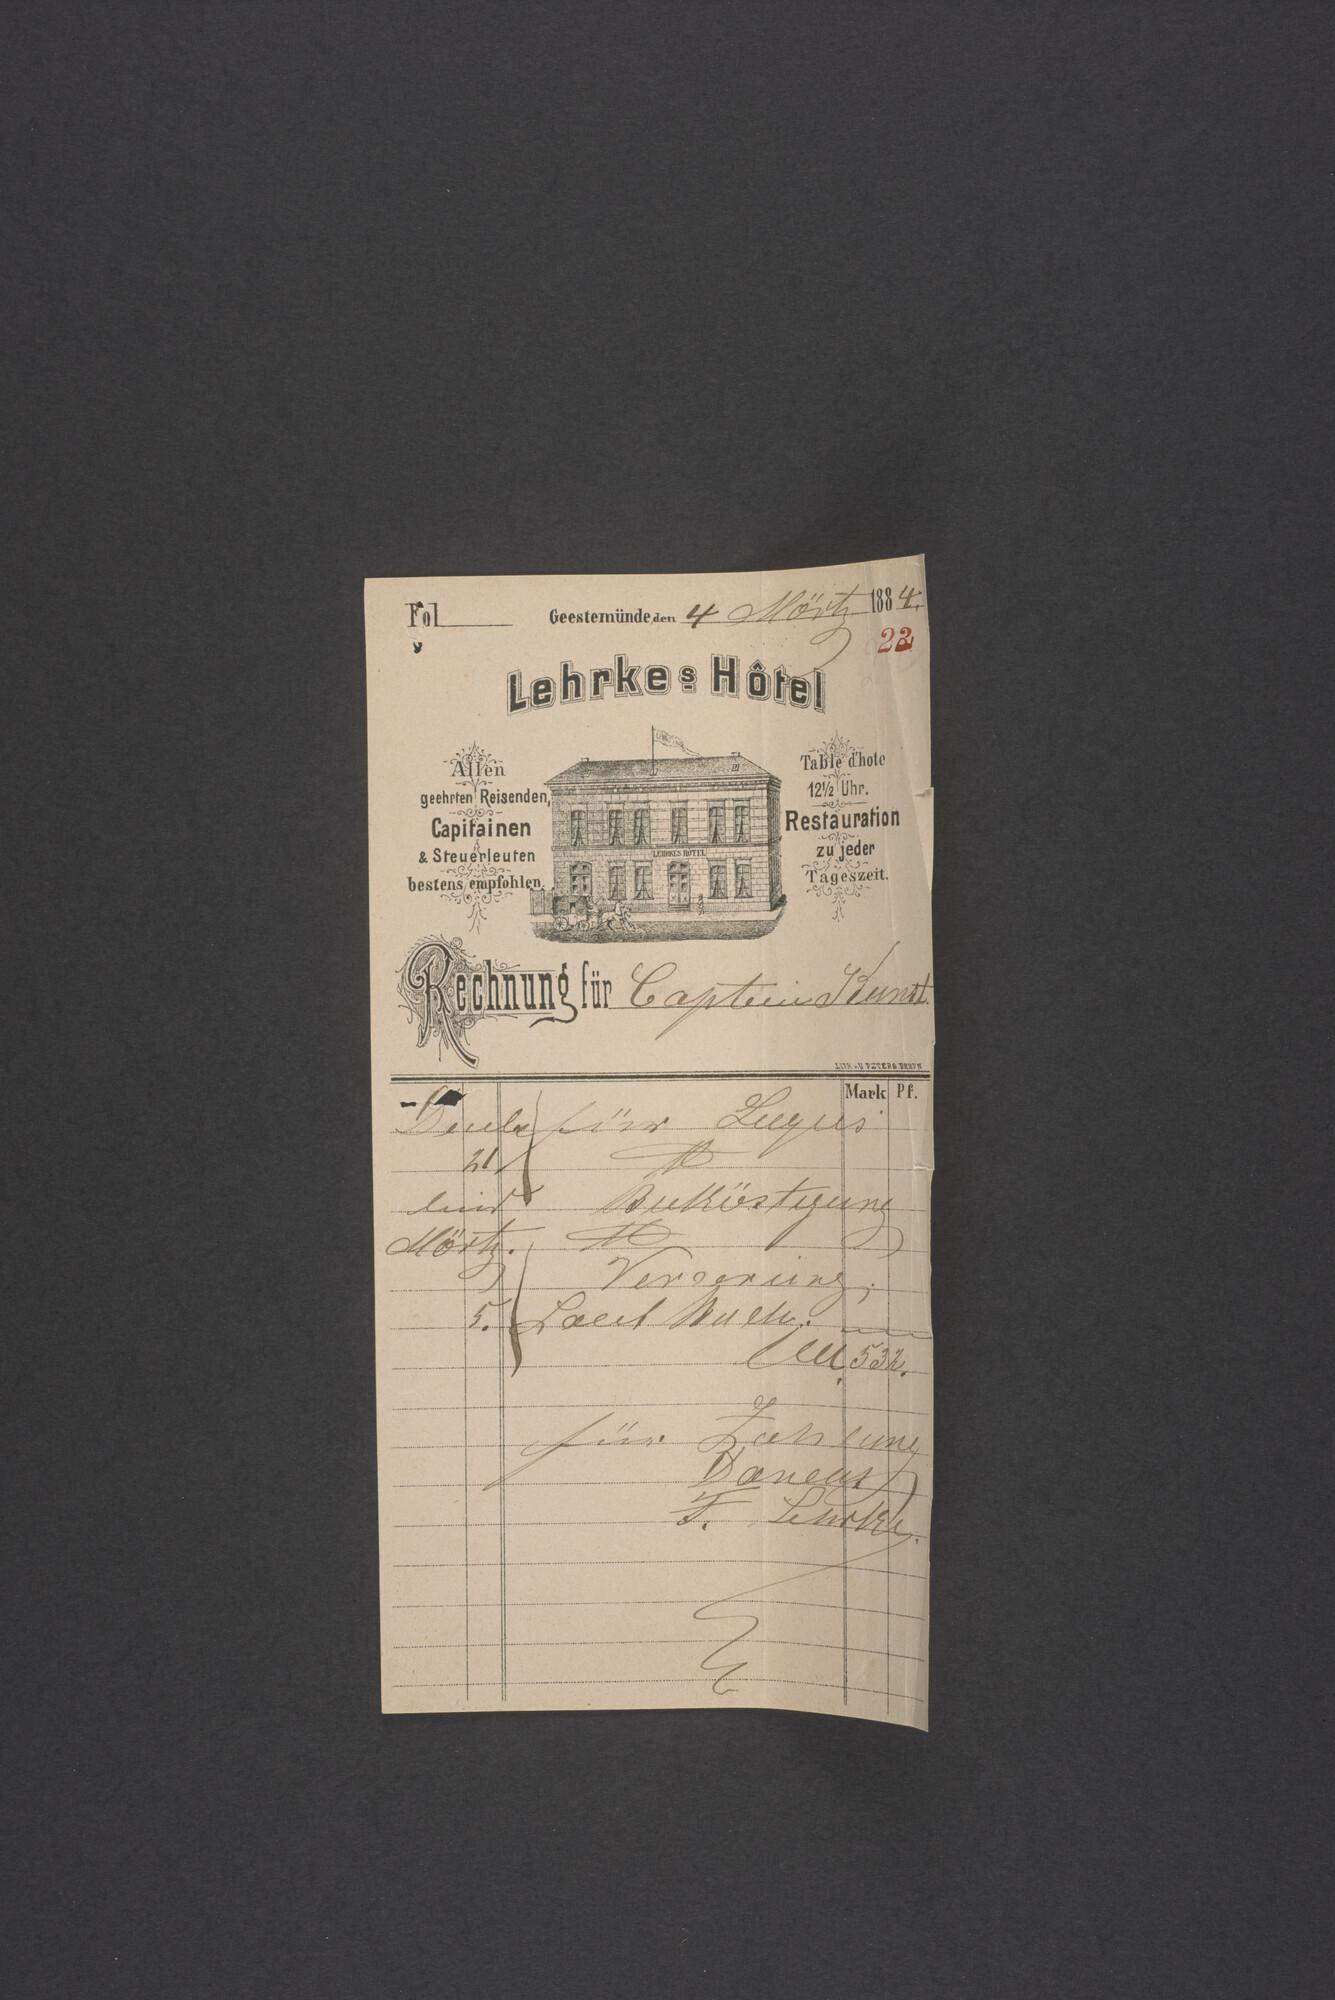 Fol
Geestemünde, den 4 Mörtz 1884.
22
Lehrkes Hôtel
Allen
geehrten Reisenden,
Capitainen
& Steuerleuten
bestens empfohlen.
LEHRKES HOTEL
Table d'hote
12½ Uhr.
Restauration
zu jeder
Tageszeit.
Rechnung für Captein Kunst.
Mark Pf.
für Lugus
21
Beköstigung
Mörtz.
5. Laut Buch.
M. 532.
für Zahlung
F. Lehrke.